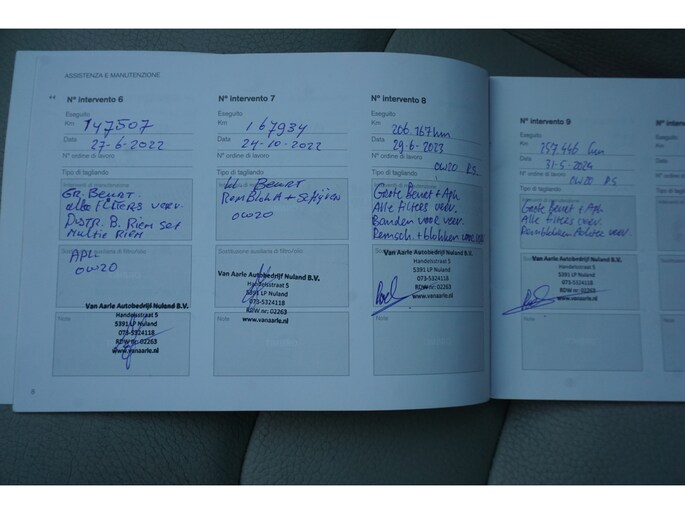 ASSISTENZA E MANUTENZIONE
N° intervento 6
Eseguito
Km 147507
Data 27-6-2022
N° ordine di lavoro
Tipo di tagliando
Interventi di manutenzione
Gr. Beurt
alle Filters verv.
Distr. B. Riem set
Multie Riem
Sostituzione ausiliaria di filtro/olio
APK
0W20
Van Aarle Autobedrijf Nuland B.V.
Handelsstraat 5
5391 LP Nuland
073-5324118
RDW nr: 02263
www.vanaarle.nl
Note
8
N° intervento 7
Eseguito
Km 167934
Data 24-10-2022
N° ordine di lavoro
Tipo di tagliando
Kl Beurt
Remblok A + Schijven
0W20
Sostituzione ausiliaria di filtro/olio
Van Aarle Autobedrijf Nuland B.V.
Handelsstraat 5
5391 LP Nuland
073-5324118
RDW nr: 02263
www.vanaarle.nl
Note
N° intervento 8
Eseguito
Km 206.167km
Data 29-6-2023
N° ordine di lavoro
0W20 RS
Tipo di tagliando
Grote Beurt + Apk
Alle filters verv.
Banden voor verv.
Remsch. + blokken voor
Van Aarle Autobedrijf Nuland B.V.
Handelsstraat 5
5391 LP Nuland
073-5324118
RDW nr: 02263
www.vanaarle.nl
Note
N° intervento 9
Eseguito
Km 257.446 km
Data 31-5-2024
N° ordine di lavoro
0W20 RS
Tipo di tagliando
Grote Beurt + Apk
Alle filters verv.
Remblokken Achter verv.
Van Aarle Autobedrijf Nuland B.V.
Handelsstraat 5
5391 LP Nuland
073-5324118
RDW nr: 02263
www.vanaarle.nl
Note
Eseguito
Km
Data
N° ordine
Tipo di